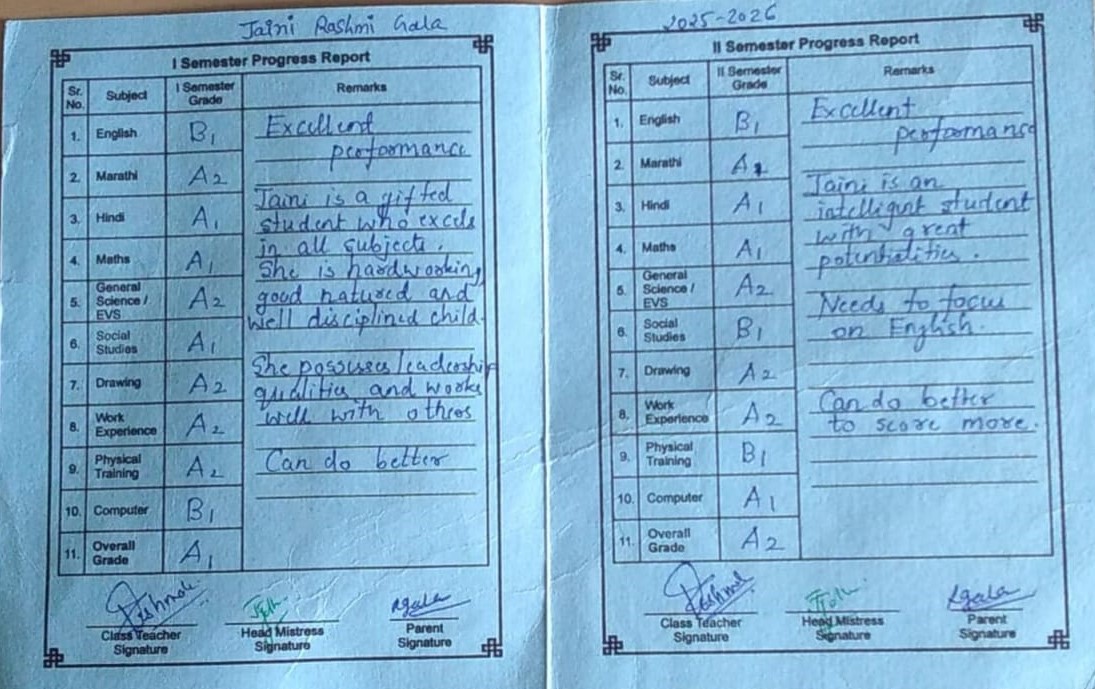 Jaini Rashmi Gala
I Semester Progress Report
Sr. No. Subject I Semester Grade Remarks
1. English B1
2. Marathi A2
3. Hindi A1
4. Maths A1
5. General Science / EVS A2
6. Social Studies A1
7. Drawing A2
8. Work Experience A2
9. Physical Training A2
10. Computer B1
11. Overall Grade A1
Excellent
performance
Jaini is a gifted
student who excels
in all subjects.
She is hardworking,
good natured and
well disciplined child.
She possesses leadership
qualities and works
well with others
Can do better
Class Teacher Signature
Head Mistress Signature
Rgala
Parent Signature
2025-2026
II Semester Progress Report
Sr. No. Subject II Semester Grade Remarks
1. English B1
2. Marathi
3. Hindi A1
4. Maths A1
5. General Science / EVS A2
6. Social Studies B1
7. Drawing A2
8. Work Experience A2
9. Physical Training B1
10. Computer A1
11. Overall Grade A2
Excellent
performance
Jaini is an
intelligent student
with great
potentialities.
Needs to focus
on English.
Can do better
to score more.
Class Teacher Signature
Head Mistress Signature
Rgala
Parent Signature